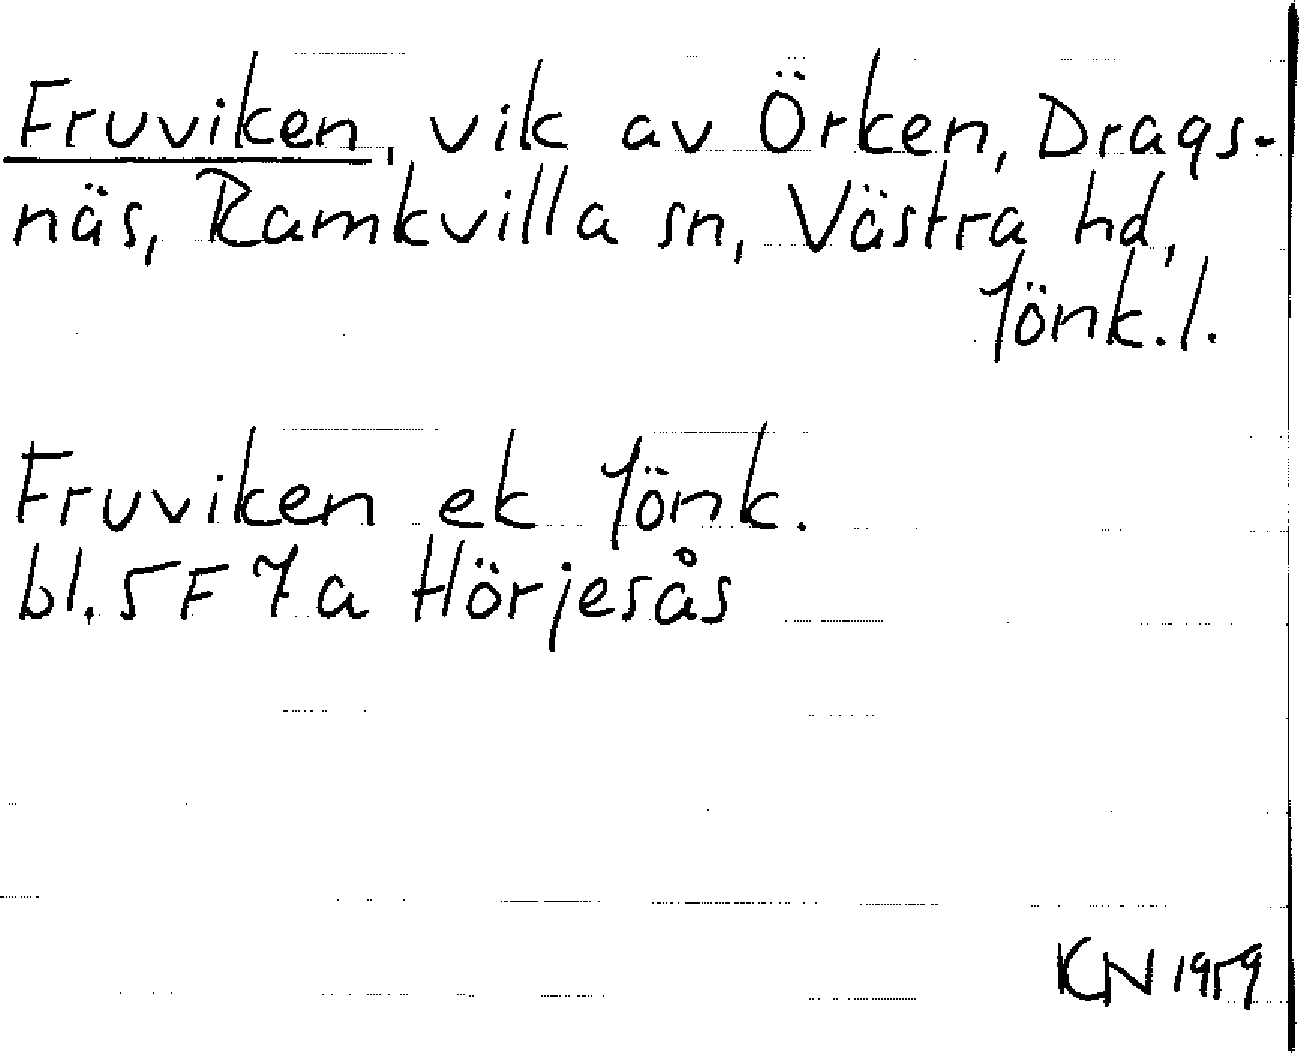 Fruviken, vik av Örken, Drags-
näs, Ramkvilla sn, Västra hd,
Jönk.l.
Fruviken ek Jönk.
bl. 5F 7a Hörjesås
KN 1959